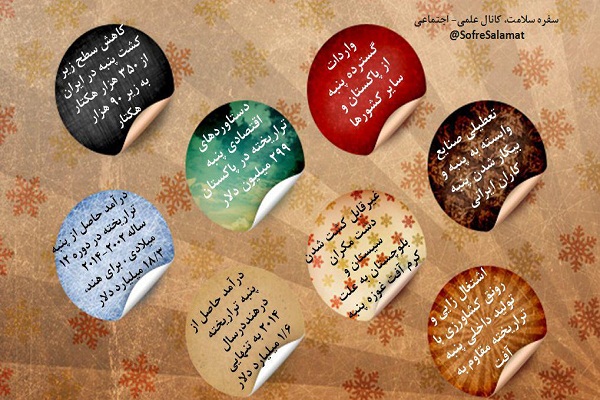 سفره سلامت، کانال علمی- اجتماعی
@SofreSalamat
کاهش سطح زیر
کشت پنبه در ایران
از ۳۵۰ هزار هکتار
به زیر ۹۰ هزار
هکتار
واردات
گسترده پنبه
از پاکستان و
سایر کشورها
دستاوردهای
اقتصادی پنبه
تراریخته در پاکستان
۲۹۹ میلیون دلار
تعطیلی صنایع
وابسته به پنبه و
بیکار شدن پنبه
کاران ایرانی
درآمد حاصل از پنبه
تراریخته در دوره ۱۲
ساله ۲۰۰۲-۲۰۱۴
میلادی ، برای هند،
۱۸/۳ میلیارد دلار
غیرقابل کشت شدن
دشت مکران
سیستان و
بلوچستان به علت
کرم آفت غوزه پنبه
درآمد حاصل از
پنبه تراریخته
درهنددرسال
۲۰۱۴ به تنهایی
۱/۶ میلیارد دلار
اشتغال زایی و
رونق کشاورزی با
تولید داخلی پنبه
تراریخته مقاوم به
آفت